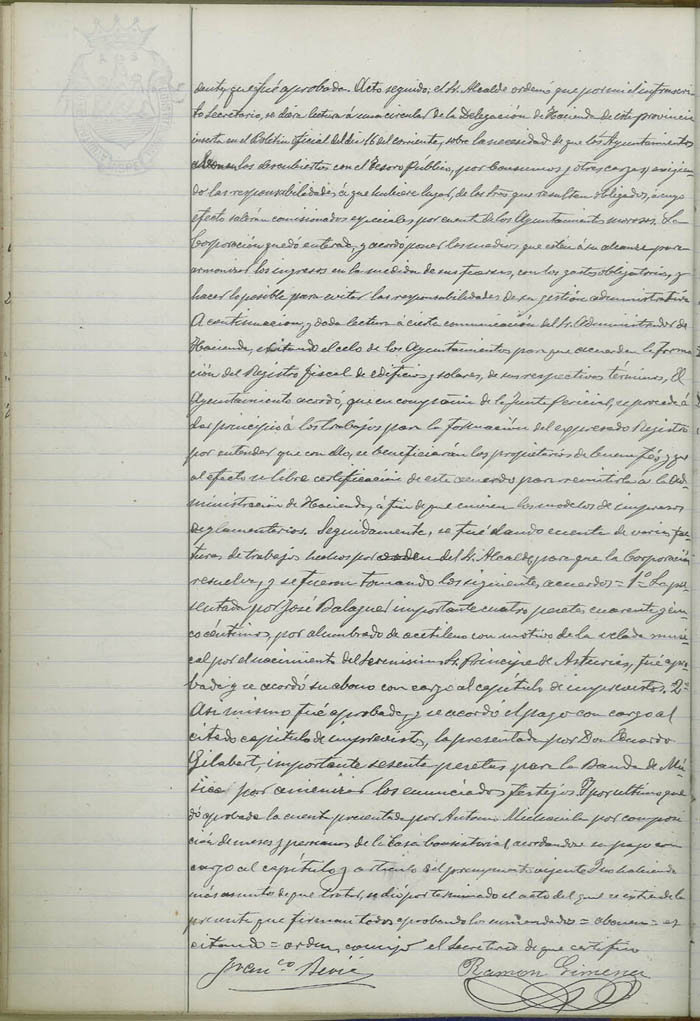 dente, que fué aprobada. Acto seguido; el Sr. Alcalde ordenó, que por mi el infrascri-
to Secretario, se diera lectura á una circular de la Delegación de Hacienda de esta provincia
inserta en el Boletin oficial del dia 16 del corriente, sobre la necesidad de que los Ayuntamientos
abonen los descubiertos con el Tesoro Público, por Consumos y otras cargas, y exigien-
do las responsabilidades, á que hubiere lugar, de los que resulten obligados, á cuyo
efecto saldrán comisionados especiales por cuenta de los Ayuntamientos morosos. La
Corporación quedó enterada, y acordó poner los medios que estén á su alcance para
armonizar los ingresos en la medida de sus fuerzas, con los gastos obligatorios, y
hacer lo posible para evitar las responsabilidades de su gestión administrativa
A continuacion, y dada lectura á cierta comunicación del Sr. Administrador de
Hacienda, excitando el celo de los Ayuntamientos para que acuerden la forma-
ción del Registro fiscal de edificios y solares, de sus respectivos términos, El
Ayuntamiento acordó, que en compañia de la Junta Pericial, se proceda á
dar principio á los trabajos para la formación del expresado Registro
por entender que con ello, se beneficiarán los propietarios de buena fé, y que
al efecto se libre certificación de este acuerdo para remitirla á la Ad-
ministración de Hacienda, á fin de que envien los modelos de impresos
reglamentarios. Seguidamente, se fué dando cuenta de varias fac-
turas de trabajos hechos por orden del Sr. Alcalde, para que la Corporación
resuelva, y se fueron tomando los siguientes acuerdos = 1º La pre-
sentada por José Balaguer importante cuatro pesetas cuarenta y cin-
co céntimos, por alumbrado de acetileno con motivo de la velada musi-
cal por el nacimiento del Serenisimo Sr. Principe de Asturias, fué apro-
bada y se acordó su abono con cargo al capítulo de imprevistos. 2º
Asi mismo fué aprobada, y se acordó el pago con cargo al
citado capitulo de imprevistos, la presentada por Don Eduardo
Gilabert, importante sesenta pesetas para la Banda de Mú-
sica por amenizar los enunciados festejos Y por ultimo que-
dó aprobada la cuenta presentada por Antonio por composi-
ción de mesas y persianas de la Casa Consistorial, acordandose su pago con
cargo al capítulo y articulo del presupuesto vigente Y no habiendo
más asuntos de que tratar, se dió por terminado el acto del que se extiende la
presente que firman todos aprobando los enmendados = abonen = ex-
citando = orden, conmigo el Secretario de que certifico
Franco Ramon Gimenez